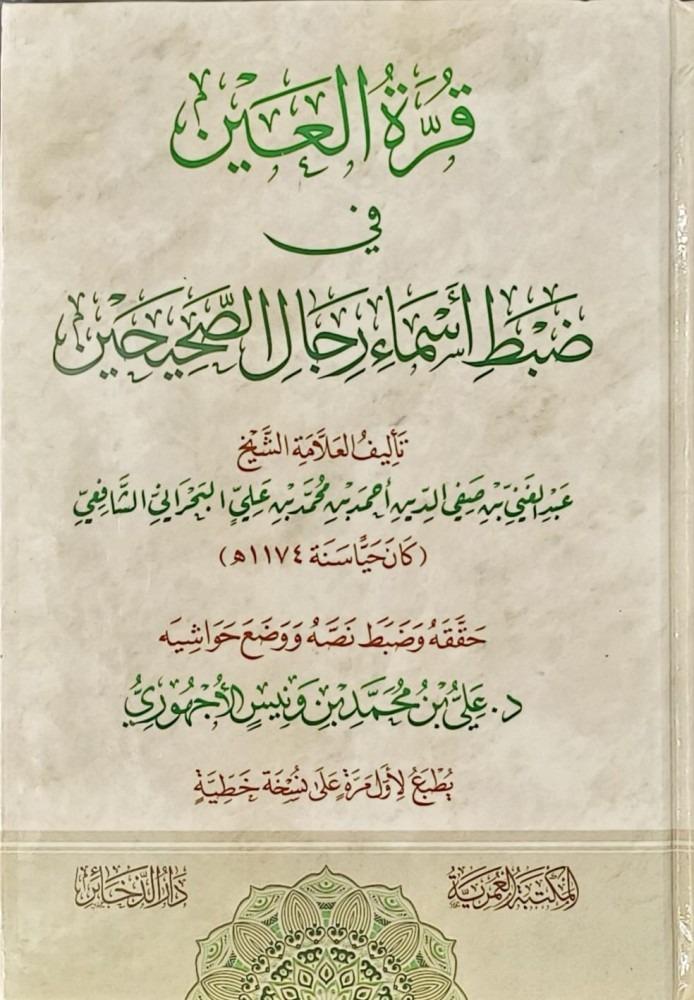 قُرَّةُ العَيْنِ
في
ضَبْطِ أَسْمَاءِ رِجَالِ الصَّحِيحَيْنِ
تَأْلِيفُ العَلَّامَةِ الشَّيْخِ
عَبْدِ الغَنِيِّ بْنِ صَفِيِّ الدِّينِ أَحْمَدَ بْنِ مُحَمَّدِ بْنِ عَلِيٍّ البَحْرَانِيِّ الشَّافِعِيِّ
(كَانَ حَيًّا سَنَة ١١٧٤ هـ)
حَقَّقَهُ وَضَبَطَ نَصَّهُ وَوَضَعَ حَوَاشِيَه
د. عَلِيُّ بْنُ مُحَمَّدِ بْنِ وَنِيسٍ الأُجْهُورِيُّ
يُطْبَعُ لِأَوَّلِ مَرَّةٍ عَلَى نُسْخَةٍ خَطِّيَّةٍ
المَكْتَبَةُ العُمَرِيَّةُ
دَارُ الذَّخَائِرِ